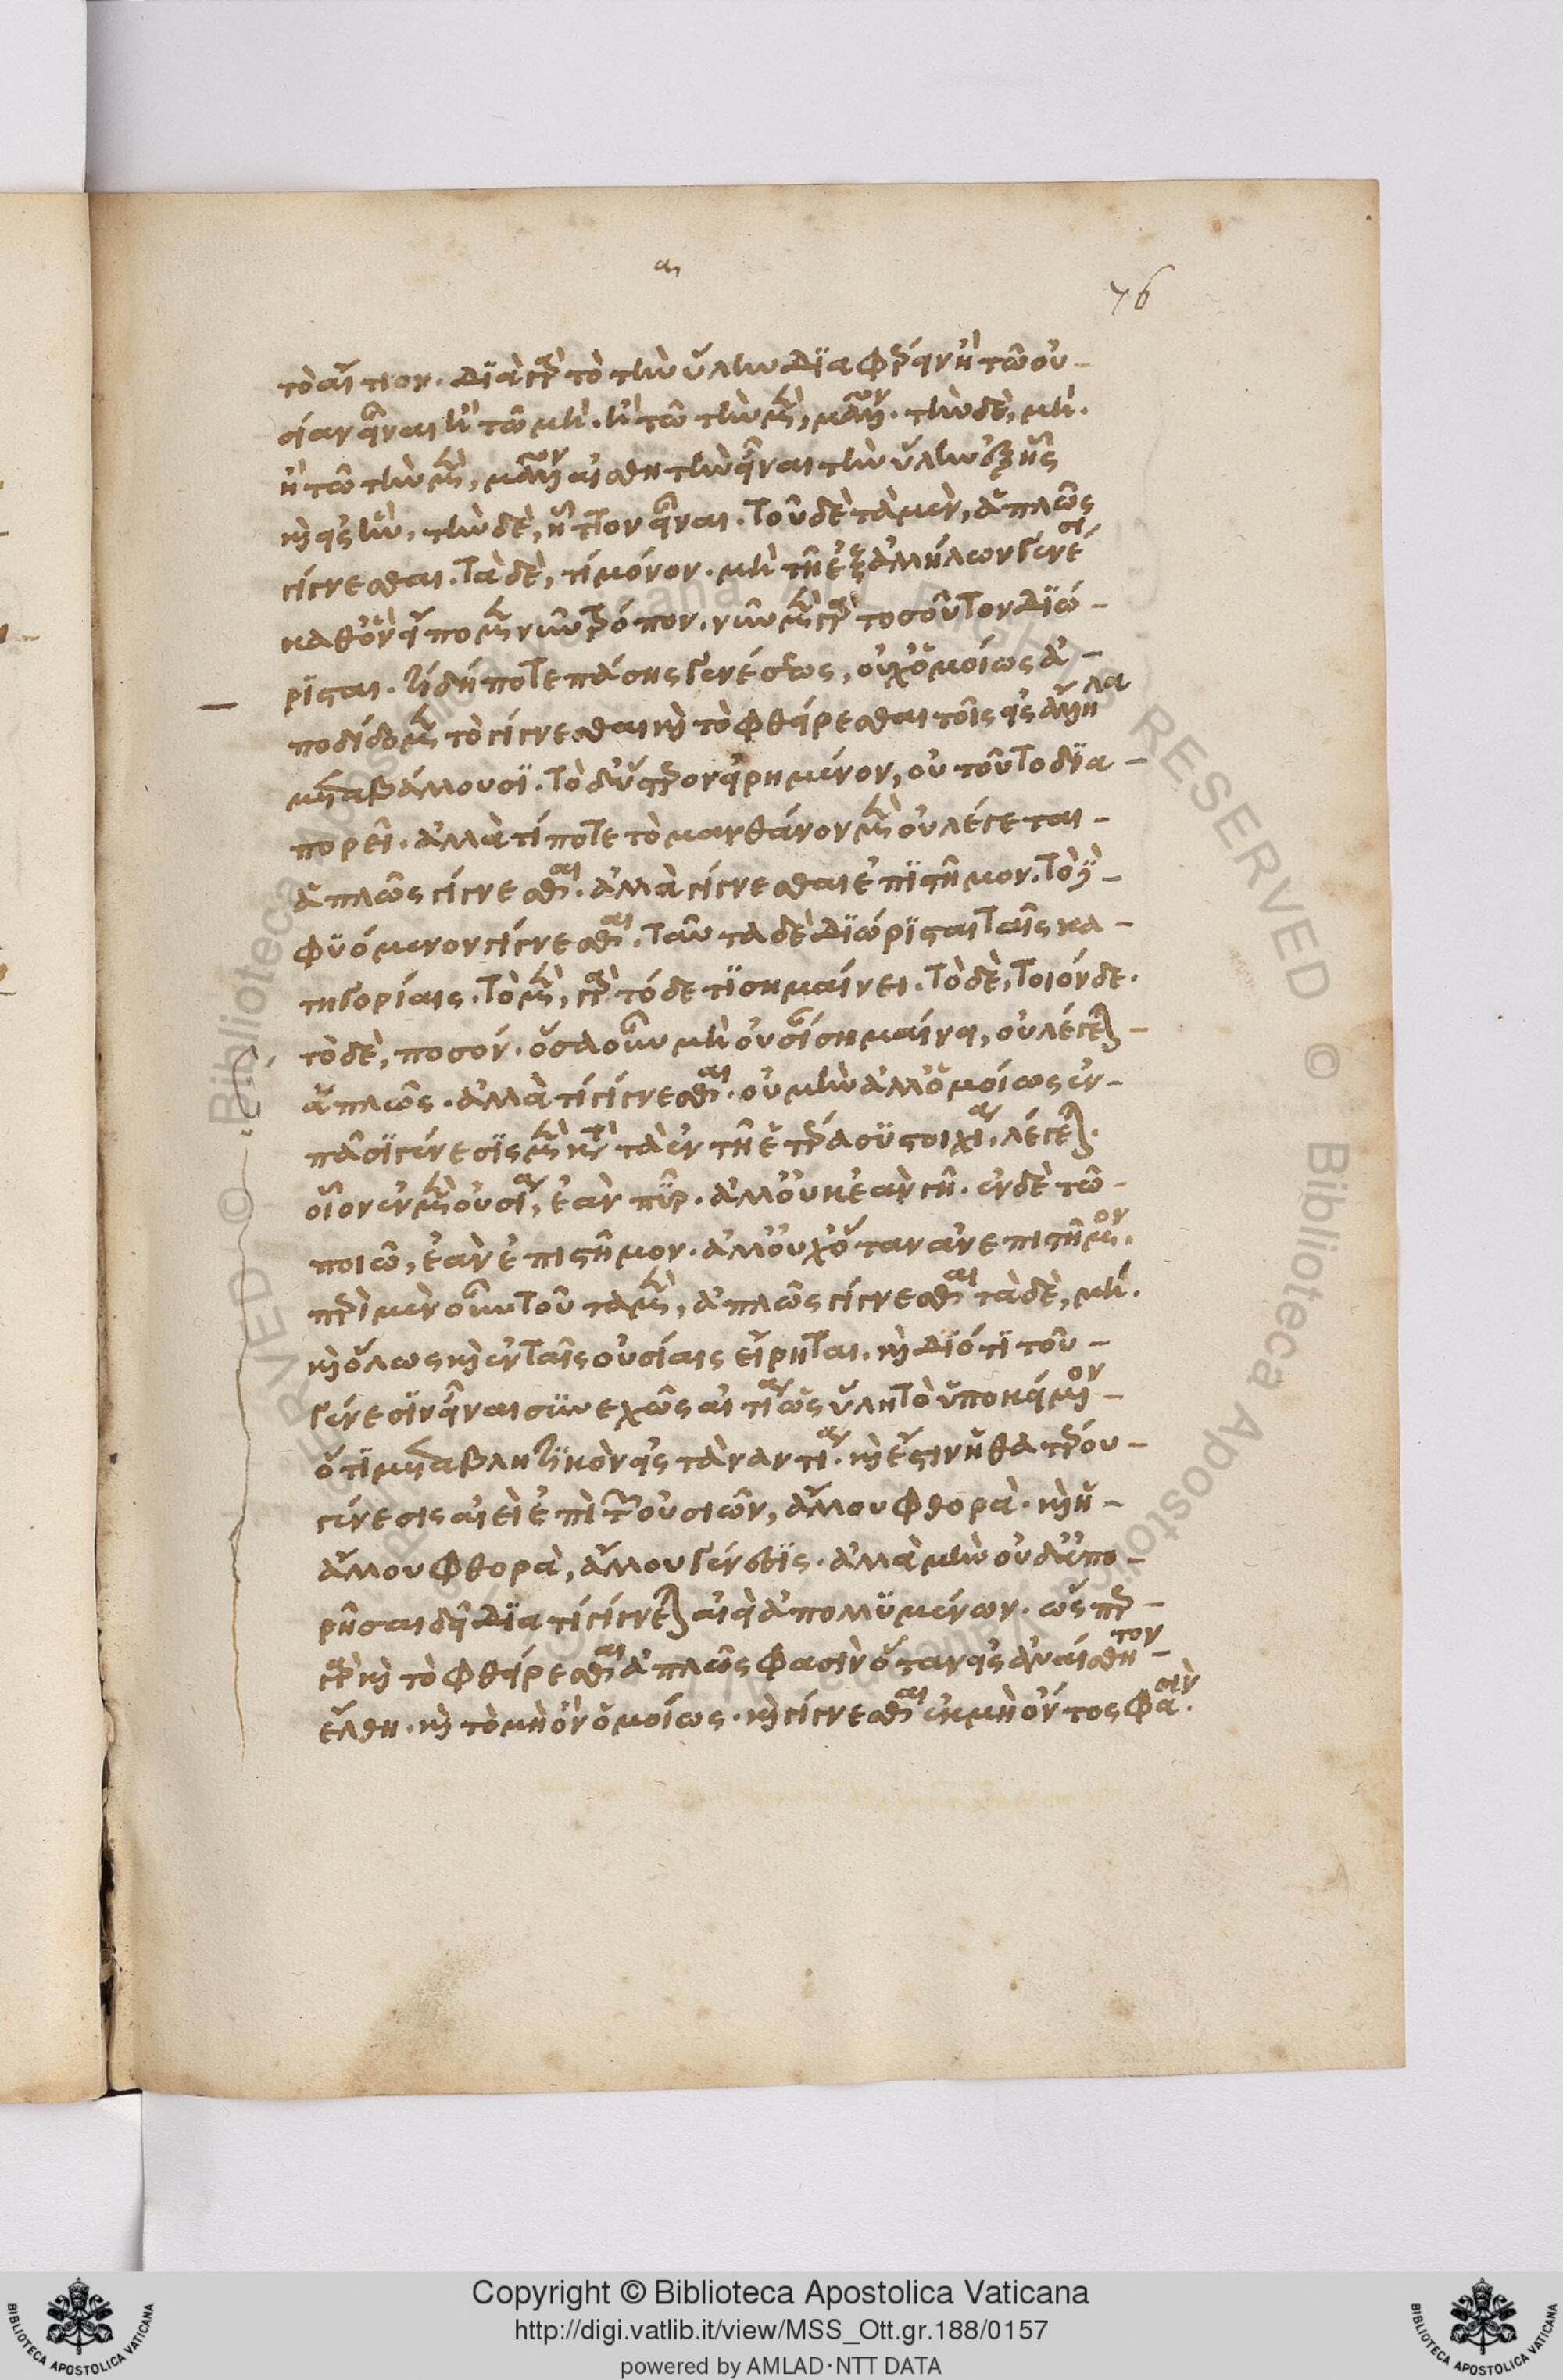 α
76
τὸ αἴτιον. διὰ γὰρ τὸ τὴν ὕλην διαφέρειν ἢ τῶ οὐ-
σίαν εἶναι ἢ τῶ μὴ. ἢ τῶ τὴν μὲν, μᾶλλον. τὴν δὲ, μή.
ἢ τῶ τὴν μὲν, μᾶλλον αἰσθητὴν εἶναι τὴν ὕλην ἐξ ἧς
καὶ εἰς ἣν, τὴν δὲ, ἧττον εἶναι. τοῦ δὲ τὰ μὲν, ἁπλῶς
γίγνεσθαι. τὰ δὲ, τὶ μόνον. μὴ τῆ ἐξ ἀλλήλων γενέσει
καθ' ὃν εἴπομεν νῦν τρόπον. νῦν μὲν γὰρ τοσοῦτον διώ-
ρισται. τί δήποτε πάσης γενέσεως, οὐχ' ὁμοίως ἀ-
ποδίδομεν τὸ γίγνεσθαι καὶ τὸ φθείρεσθαι τοῖς εἰς ἄλληλα
μεταβάλλουσι. τὸ δ' ὕστερον εἰρημένον, οὐ τοῦτο δια-
πορεῖ. ἀλλὰ τί ποτε τὸ μανθάνον μὲν οὐ λέγεται
ἁπλῶς γίγνεσθαι. ἀλλὰ γίγνεσθαι ἐπιστῆμον. τὸ δὲ
φυόμενον γίγνεσθαι. ταῦτα δὲ διώρισται ταῖς κα-
τηγορίαις. τὸ μὲν, γὰρ τόδε τι σημαίνει. τὸ δὲ, τοιόνδε.
τὸ δὲ, ποσόν. ὅσα οὖν μὴ οὐσίαν σημαίνει, οὐ λέγεται
ἁπλῶς. ἀλλὰ τὶ γίγνεσθαι. οὐ μὴν ἀλλ' ὁμοίως ἐν
πᾶσι γένεσις μὲν κατὰ τὰ ἐν τῆ ἑτέρα συστοιχία, λέγεται.
οἷον ἐν μὲν οὐσία, ἐὰν πῦρ. ἀλλ' οὐκ ἐὰν γῆ. ἐν δὲ τῶ
ποιῶ, ἐὰν ἐπιστῆμον. ἀλλ' οὐχ' ὅταν ἀνεπιστῆμον.
περὶ μὲν οὖν τοῦ τὰ μὲν, ἁπλῶς γίγνεσθαι τὰ δὲ, μή.
καὶ ὅλως καὶ ἐν ταῖς οὐσίαις εἴρηται. καὶ διότι τοῦ
γένεσιν εἶναι συνεχῶς αἰτία ὡς ὕλη τὸ ὑποκείμενον
ὅτι μεταβλητικὸν εἰς τἀναντία. καὶ ἔστιν ἡ θατέρου
γένεσις αἰεὶ ἐπὶ τῶν οὐσιῶν, ἄλλου φθορὰ. καὶ ἡ
ἄλλου φθορὰ, ἄλλου γένεσις. ἀλλὰ μὴν οὐδ' ἀπο-
ρῆσαι δεῖ διὰ τί γίγνεται αἰεὶ ἀπολλυμένων. ὥσπερ
γὰρ καὶ τὸ φθείρεσθαι ἁπλῶς φασὶν ὅταν εἰς ἀναίσθητον
ἔλθη. καὶ τὸ μὴ ὂν ὁμοίως. καὶ γίγνεσθαι ἐκ μὴ ὄντος φασὶν.
Copyright © Biblioteca Apostolica Vaticana
http://digi.vatlib.it/view/MSS_Ott.gr.188/0157
powered by AMLAD·NTT DATA